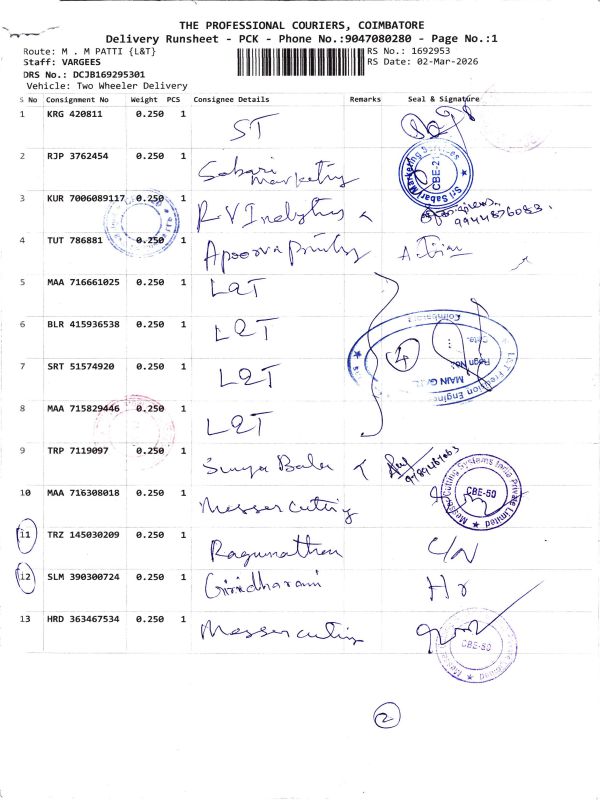 THE PROFESSIONAL COURIERS, COIMBATORE
Delivery Runsheet - PCK - Phone No.:9047080280 - Page No.:1
Route: M . M PATTI {L&T}
RS No.: 1692953
Staff: VARGEES
RS Date: 02-Mar-2026
DRS No.: DCJB169295301
Vehicle: Two Wheeler Delivery
S No Consignment No Weight PCS Consignee Details Remarks Seal & Signature
1 KRG 420811 0.250 1 ST
2 RJP 3762454 0.250 1 Sabari Marketing
Sri Sabari Marketing Services CBE-21
3 KUR 7006089117 0.250 1 RV Industries
9944876083.
4 TUT 786881 0.250 1 Apoorva
5 MAA 716661025 0.250 1 L&T
6 BLR 415936538 0.250 1 L&T
MAIN GATE
4
7 SRT 51574920 0.250 1 L&T
8 MAA 715829446 0.250 1 L&T
9 TRP 7119097 0.250 1 Surya Bala
10 MAA 716308018 0.250 1 Messer cutting
Messer Cutting Systems India Private Limited CBE-50
11 TRZ 145030209 0.250 1 Ragunathan C/N
12 SLM 390300724 0.250 1 Giridharani
13 HRD 363467534 0.250 1 Messer cutting
CBE-50
2